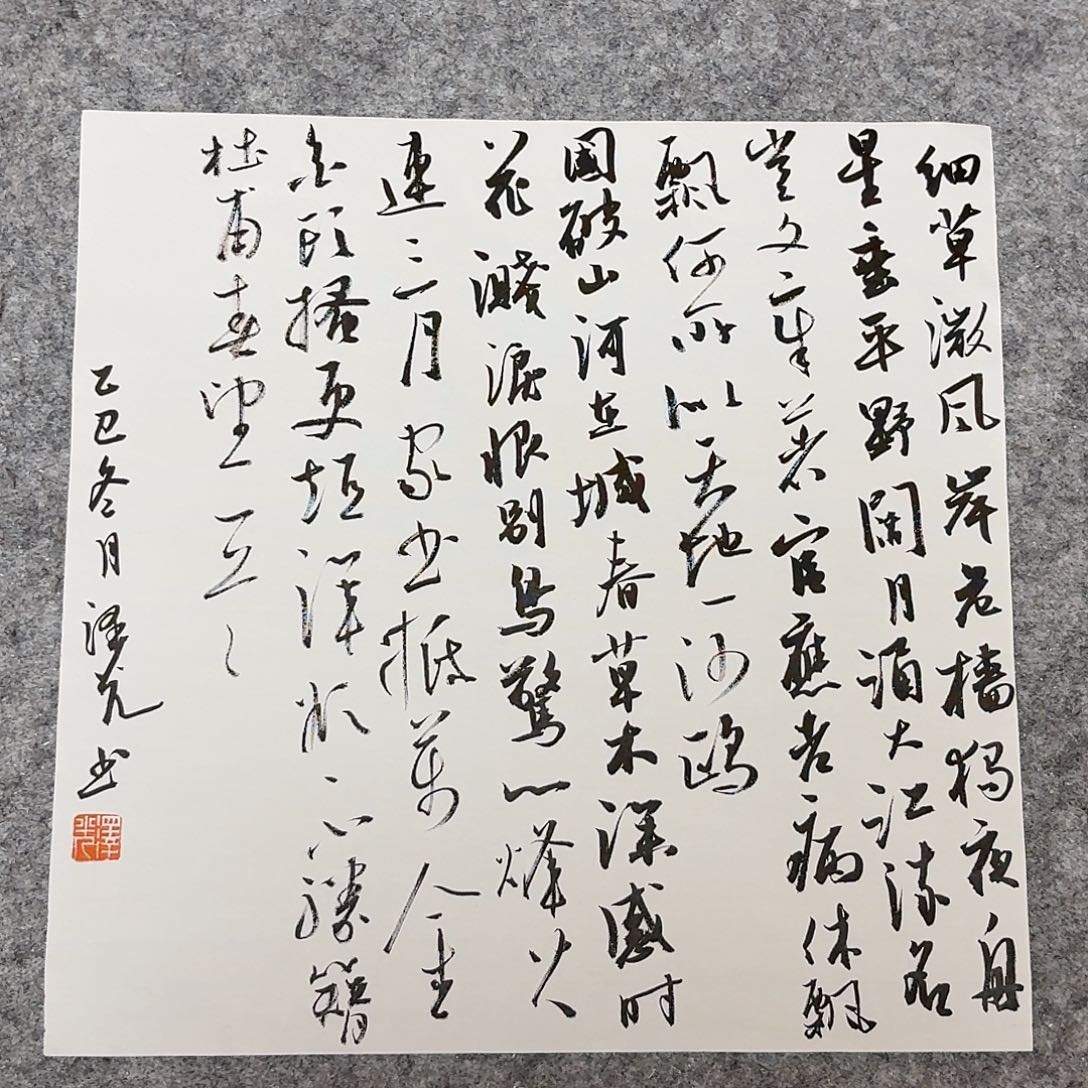 细草微风岸危樯独夜舟
星垂平野阔月涌大江流名
岂文章著官應老病休飘
飘何所以天地一沙鸥
國破山河在城春草木深感时
花濺淚恨别鸟驚心烽火
連三月家书抵萬金
白头搔更短浑欲不勝簪
杜甫春望
乙巳冬月泽光书
澤光